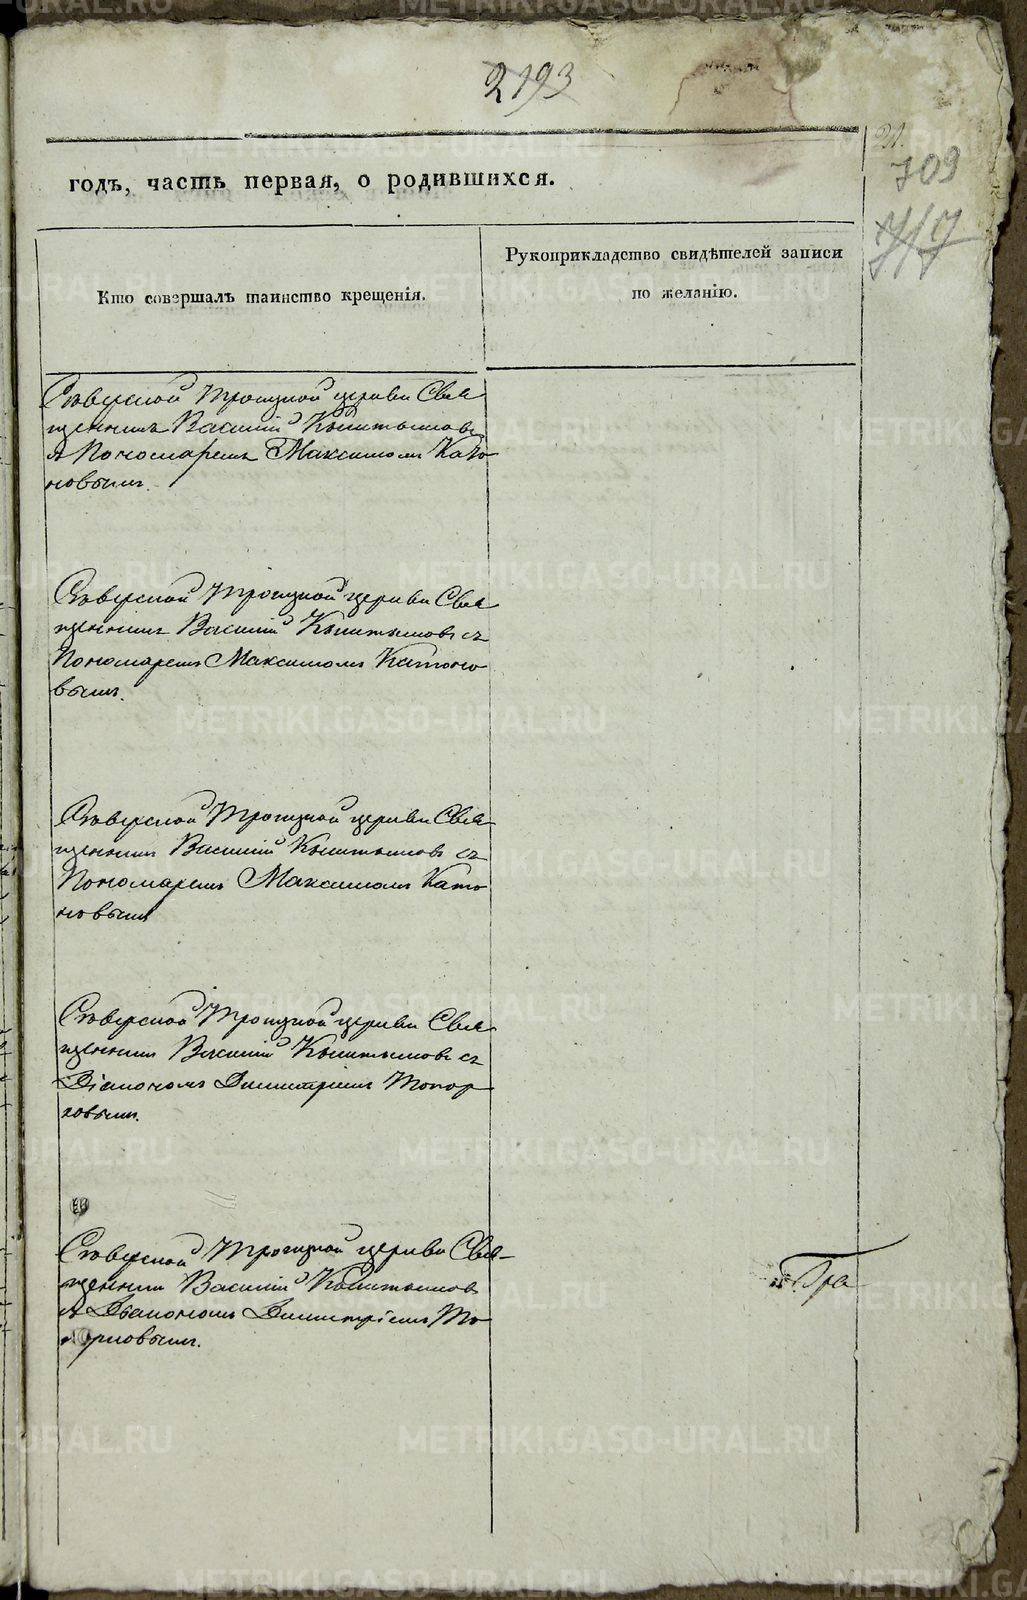 2193
709
годъ, часть первая, о родившихся.
Кто совершалъ таинство крещенія.
Рукоприкладство свидѣтелей записи
по желанію.
Сѣверской Троицкой церкви Свя
щенникъ Василій Кыштымовъ
съ Пономаремъ Максимомъ Като
новымъ.
Сѣверской Троицкой церкви Свя
щенникъ Василій Кыштымовъ съ
Пономаремъ Максимомъ Катоно
вымъ.
Сѣверской Троицкой церкви Свя
щенникъ Василій Кыштымовъ съ
Пономаремъ Максимомъ Като
новымъ
Сѣверской Троицкой церкви Свя
щенникъ Василій Кыштымовъ съ
Діакономъ Димитріемъ Топор
ковымъ.
Сѣверской Троицкой церкви Свя-
щенникъ Василій Кыштымовъ
съ Діакономъ Димитріемъ То
порковымъ.
METRIKI.GASO-URAL.RU